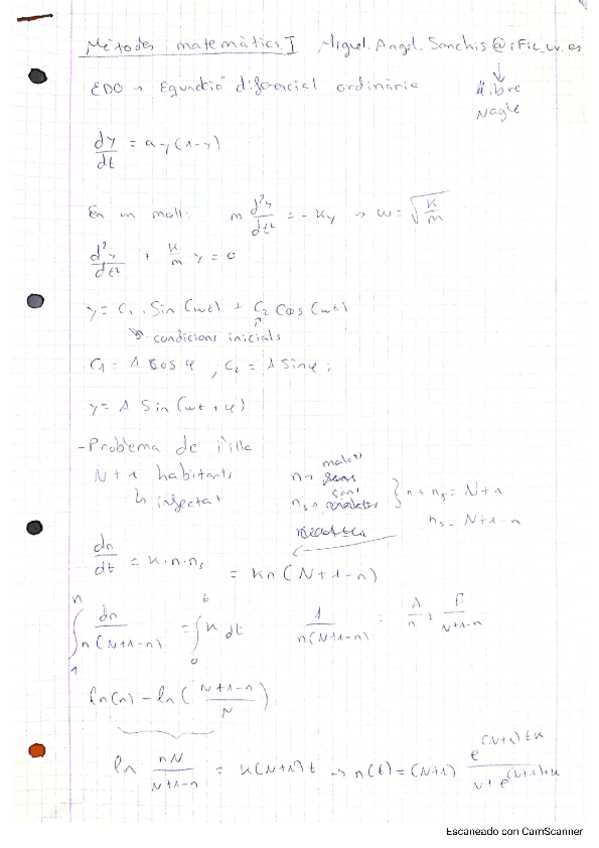 Métodes matemàtics I Miguel.Angel.Sanchis@ific.uv.es
EDO → Equació diferencial ordinària
llibre
Nagle
dy/dt = a y (1-y)
En un moll: m d²y/dt² = - ky → w = √(k/m)
d²y/dt² + k/m y = 0
y = C₁ . Sin (wt) + C₂ Cos (wt)
condicions inicials
C₁ = A Cos φ , C₂ = A Sin φ ;
y = A Sin (wt + φ)
- Problema de l'illa
N + 1 habitants
↳ infectat
n → malalts
nₛ → sans
} n + nₛ = N + 1
nₛ = N+1-n
dn/dt = k · n · nₛ = kn (N+1-n)
∫₁ⁿ dn/n(N+1-n) = ∫₀ᵗ k dt
1/n(N+1-n) = A/n + B/N+1-n
ln(n) - ln (N+1-n/N)
ln nN/N+1-n = k(N+1)t → n(t) = (N+1) e^(N+1)tk/N+e^(N+1)tk
Escaneado con CamScanner